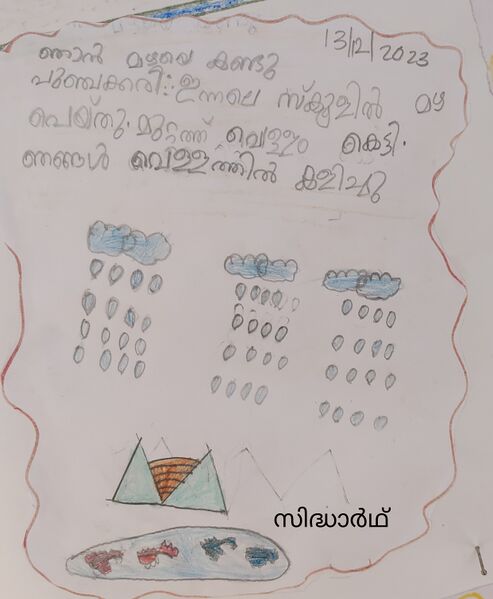 13/12/2023
ഞാൻ മഴയെ കണ്ടു
പുഞ്ചക്കരി: ഇന്നലെ സ്കൂളിൽ മഴ
പെയ്തു. മുറ്റത്ത് വെള്ളം കെട്ടി.
ഞങ്ങൾ വെള്ളത്തിൽ കളിച്ചു
സിദ്ധാർഥ്